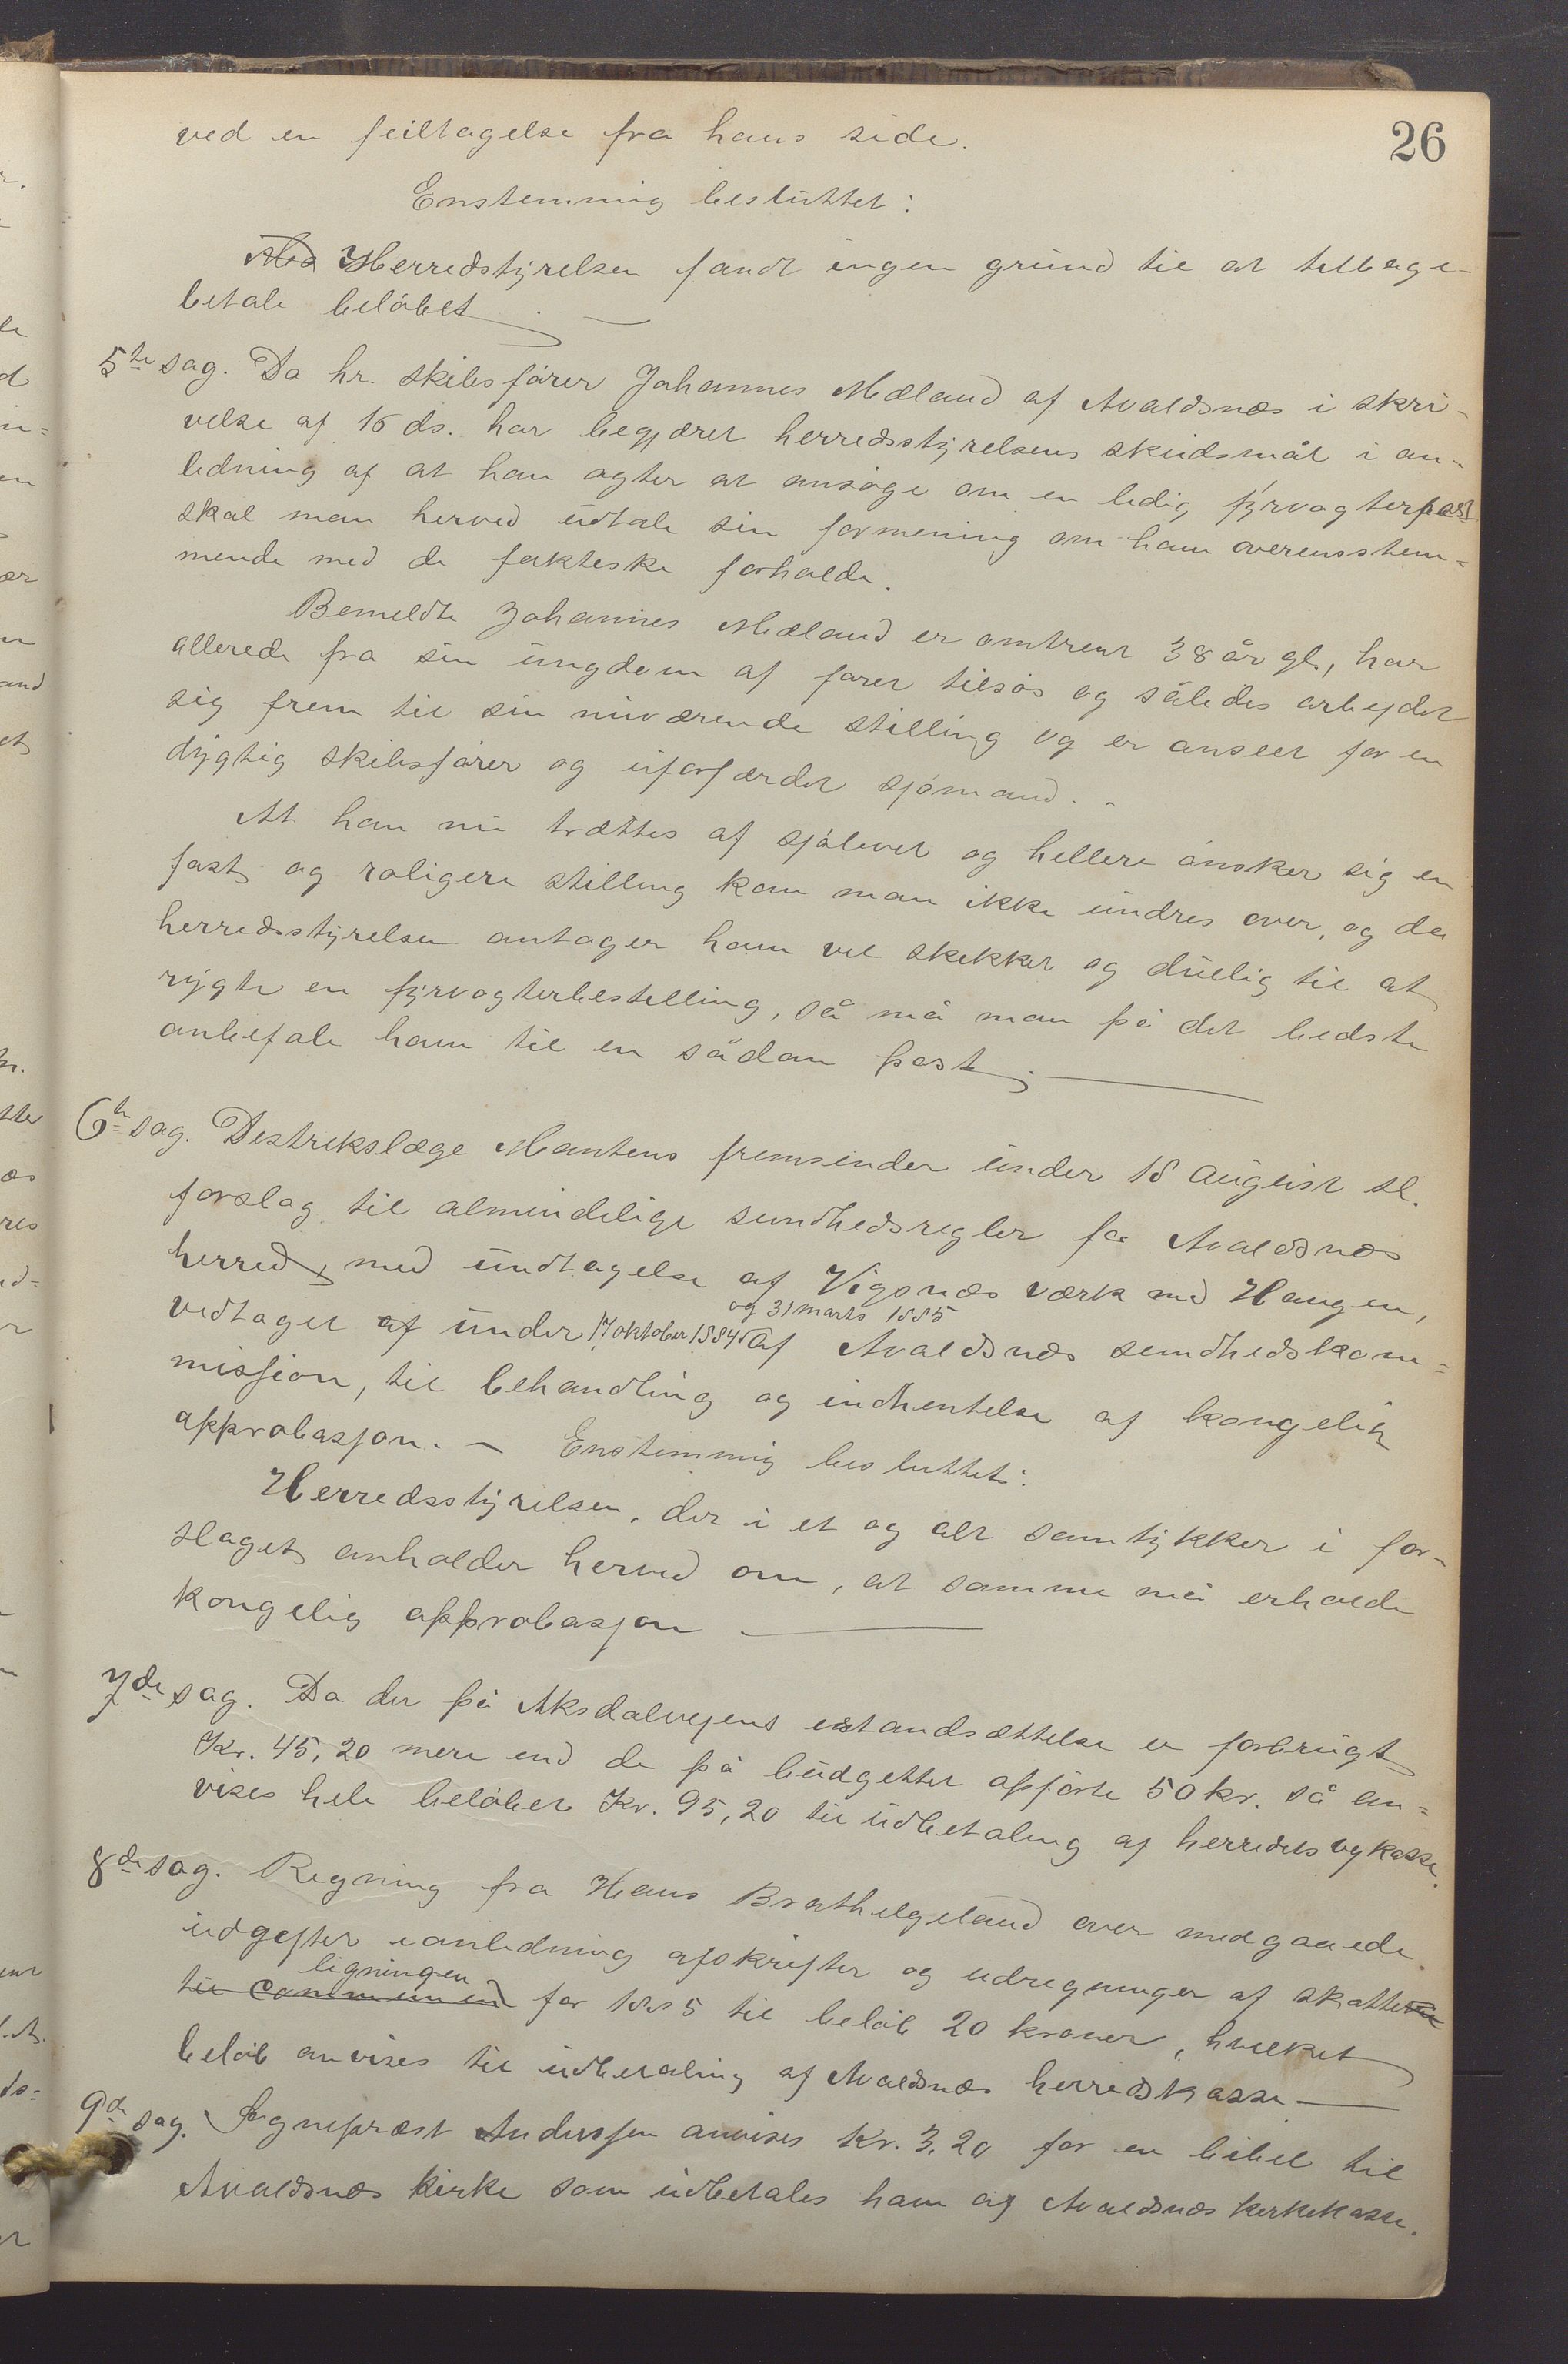 26
ved en feiltagelse fra hans side.
Enstemmig besluttet:
Herredstyrelsen fandt ingen grund til at tilbage-
betale beløbet. —
5te sag. Da hr. skibsfører Johannes Mæland af Avaldsnæs i skri-
velse af 16 ds. har begjæret herredsstyrelsens skudsmål i an-
ledning af at han agter at ansøge om en ledig fyrvogterpost
skal man herved udtale sin formening om ham overensstem-
mende med de faktiske forholde.
Bemeldte Johannes Mæland er omtrent 38 år gl., har
allerede fra sin ungdom af faret tilsøs og således arbejdet
sig frem til sin nuværende stilling og er anseet for en
dygtig skibsfører og uforfærdet sjømand. -
At han nu trættes af sjølivet og hellere ønsker sig en
fast og roligere stilling kan man ikke undres over, og da
herredsstyrelsen antager ham vel skikket og duelig til at
rygte en fyrvogterbestilling, så må man på det bedste
anbefale ham til en sådan post. —
6te sag. Distriktslæge Mantens fremsender under 18 august sl.
forslag til almindelige sundhedsregler for Avaldsnæs
herred, med undtagelse af Vigsnæs værk med Haugen,
og 31 marts 1885
vedtaget af under 17 oktober 1884 af Avaldsnæs sundhedskom=
mission, til behandling og indhentelse af kongelig
approbasjon. — Enstemmig besluttet:
Herredsstyrelsen, der i et og alt samtykker i for-
slaget anholder herved om, at samme må erholde
kongelig approbasjon —
7de sag. Da der på Aksdalvejens istandsættelse er forbrugt
Kr. 45,20 mere end de på budgettet opførte 50 kr. så an=
vises hele beløbet Kr. 95,20 til udbetaling af herredets vejkasse.
8de sag. Regning fra Hans Brathelgeland over medgaaede
udgifter i anledning afskrifter og udregninger af skatte
ligningen
til communen for 1885 til beløb 20 kroner, hvilket
beløb anvises til udbetaling af Avaldsnæs herredskasse —
9de sag. Sognepræst Anderssen anvises Kr. 3,20 for en bibel til
Avaldsnæs kirke som udbetales ham af Avaldsnæs kirkekasse.